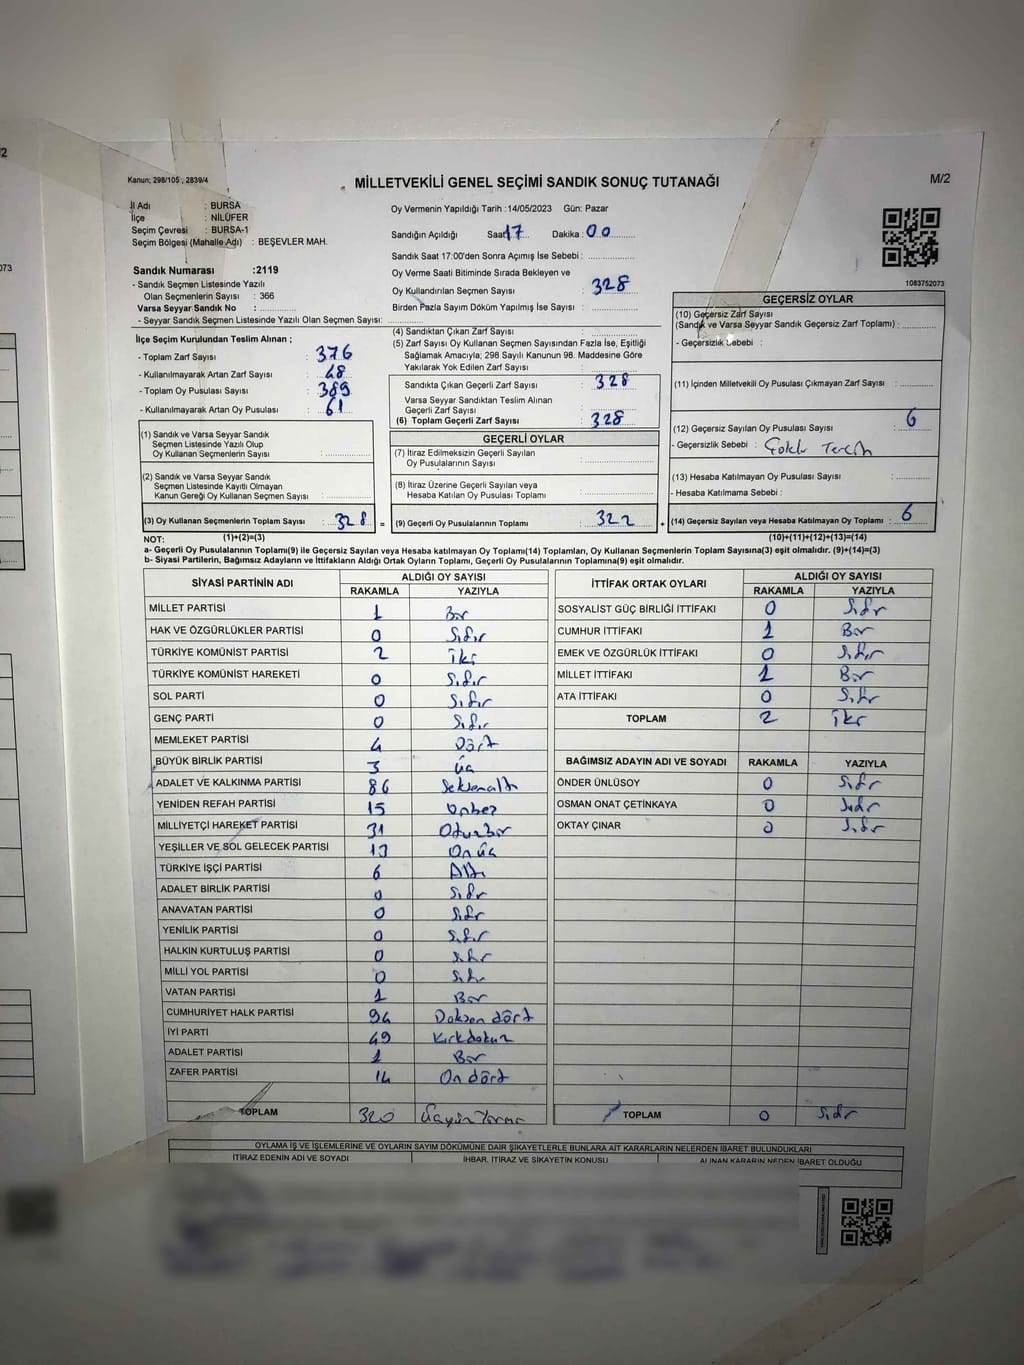 /2
073
Kanun; 298/105 , 2839/4
MİLLETVEKİLİ GENEL SEÇİMİ SANDIK SONUÇ TUTANAĞI
M/2
İl Adı : BURSA
İlçe : NİLÜFER
Seçim Çevresi : BURSA-1
Seçim Bölgesi (Mahalle Adı) : BEŞEVLER MAH.
Sandık Numarası :2119
- Sandık Seçmen Listesinde Yazılı
Olan Seçmenlerin Sayısı : 366
Varsa Seyyar Sandık No :
- Seyyar Sandık Seçmen Listesinde Yazılı Olan Seçmen Sayısı:
Oy Vermenin Yapıldığı Tarih : 14/05/2023 Gün: Pazar
Sandığın Açıldığı Saat: 17 Dakika : 00
Sandık Saat 17:00'den Sonra Açımış İse Sebebi :
Oy Verme Saati Bitiminde Sırada Bekleyen ve
Oy Kullandırılan Seçmen Sayısı : 328
Birden Fazla Sayım Döküm Yapılmış İse Sayısı :
1083752073
İlçe Seçim Kurulundan Teslim Alınan ;
- Toplam Zarf Sayısı : 376
- Kullanılmayarak Artan Zarf Sayısı : 48
- Toplam Oy Pusulası Sayısı : 389
- Kullanılmayarak Artan Oy Pusulası : 61
(1) Sandık ve Varsa Seyyar Sandık
Seçmen Listesinde Yazılı Olup
Oy Kullanan Seçmenlerin Sayısı :
(2) Sandık ve Varsa Seyyar Sandık
Seçmen Listesinde Kayıtlı Olmayan
Kanun Gereği Oy Kullanan Seçmen Sayısı :
(3) Oy Kullanan Seçmenlerin Toplam Sayısı : 328 =
(4) Sandıktan Çıkan Zarf Sayısı :
(5) Zarf Sayısı Oy Kullanan Seçmen Sayısından Fazla İse, Eşitliği
Sağlamak Amacıyla; 298 Sayılı Kanunun 98. Maddesine Göre
Yakılarak Yok Edilen Zarf Sayısı :
Sandıkta Çıkan Geçerli Zarf Sayısı : 328
Varsa Seyyar Sandıktan Teslim Alınan
Geçerli Zarf Sayısı :
(6) Toplam Geçerli Zarf Sayısı : 328
GEÇERLİ OYLAR
(7) İtiraz Edilmeksizin Geçerli Sayılan
Oy Pusulalarının Sayısı :
(8) İtiraz Üzerine Geçerli Sayılan veya
Hesaba Katılan Oy Pusulası Toplamı :
(9) Geçerli Oy Pusulalarının Toplamı : 322 +
GEÇERSİZ OYLAR
(10) Geçersiz Zarf Sayısı
(Sandık ve Varsa Seyyar Sandık Geçersiz Zarf Toplamı) :
- Geçersizlik Sebebi :
(11) İçinden Milletvekili Oy Pusulası Çıkmayan Zarf Sayısı :
(12) Geçersiz Sayılan Oy Pusulası Sayısı : 6
- Geçersizlik Sebebi : Çoklu Tercih
(13) Hesaba Katılmayan Oy Pusulası Sayısı :
- Hesaba Katılmama Sebebi :
(14) Geçersiz Sayılan veya Hesaba Katılmayan Oy Toplamı : 6
NOT: (1)+(2)=(3) (10)+(11)+(12)+(13)=(14)
a- Geçerli Oy Pusulalarının Toplamı(9) ile Geçersiz Sayılan veya Hesaba katılmayan Oy Toplamı(14) Toplamları, Oy Kullanan Seçmenlerin Toplam Sayısına(3) eşit olmalıdır. (9)+(14)=(3)
b- Siyasi Partilerin, Bağımsız Adayların ve İttifakların Aldığı Ortak Oyların Toplamı, Geçerli Oy Pusulalarının Toplamına(9) eşit olmalıdır.
SİYASİ PARTİNİN ADI ALDIĞI OY SAYISI
RAKAMLA YAZIYLA
MİLLET PARTİSİ 1 Bir
HAK VE ÖZGÜRLÜKLER PARTİSİ 0 Sıfır
TÜRKİYE KOMÜNİST PARTİSİ 2 İki
TÜRKİYE KOMÜNİST HAREKETİ 0 Sıfır
SOL PARTİ 0 Sıfır
GENÇ PARTİ 0 Sıfır
MEMLEKET PARTİSİ 4 Dört
BÜYÜK BİRLİK PARTİSİ 3 Üç
ADALET VE KALKINMA PARTİSİ 86 Seksenaltı
YENİDEN REFAH PARTİSİ 15 Onbeş
MİLLİYETÇİ HAREKET PARTİSİ 31 Otuzbir
YEŞİLLER VE SOL GELECEK PARTİSİ 13 Onüç
TÜRKİYE İŞÇİ PARTİSİ 6 Altı
ADALET BİRLİK PARTİSİ 0 Sıfır
ANAVATAN PARTİSİ 0 Sıfır
YENİLİK PARTİSİ 0 Sıfır
HALKIN KURTULUŞ PARTİSİ 0 Sıfır
MİLLİ YOL PARTİSİ 0 Sıfır
VATAN PARTİSİ 1 Bir
CUMHURİYET HALK PARTİSİ 94 Doksan dört
İYİ PARTİ 49 Kırkdokuz
ADALET PARTİSİ 1 Bir
ZAFER PARTİSİ 14 On dört
TOPLAM 320 Üçyüzyirmi
İTTİFAK ORTAK OYLARI ALDIĞI OY SAYISI
RAKAMLA YAZIYLA
SOSYALİST GÜÇ BİRLİĞİ İTTİFAKI 0 Sıfır
CUMHUR İTTİFAKI 1 Bir
EMEK VE ÖZGÜRLÜK İTTİFAKI 0 Sıfır
MİLLET İTTİFAKI 1 Bir
ATA İTTİFAKI 0 Sıfır
TOPLAM 2 İki
BAĞIMSIZ ADAYIN ADI VE SOYADI RAKAMLA YAZIYLA
ÖNDER ÜNLÜSOY 0 Sıfır
OSMAN ONAT ÇETİNKAYA 0 Sıfır
OKTAY ÇINAR 0 Sıfır
TOPLAM 0 Sıfır
OYLAMA İŞ VE İŞLEMLERİNE VE OYLARIN SAYIM DÖKÜMÜNE DAİR ŞİKAYETLERLE BUNLARA AİT KARARLARIN NELERDEN İBARET BULUNDUKLARI
İTİRAZ EDENİN ADI VE SOYADI İHBAR, İTİRAZ VE ŞİKAYETİN KONUSU ALINAN KARARIN NEDEN İBARET OLDUĞU